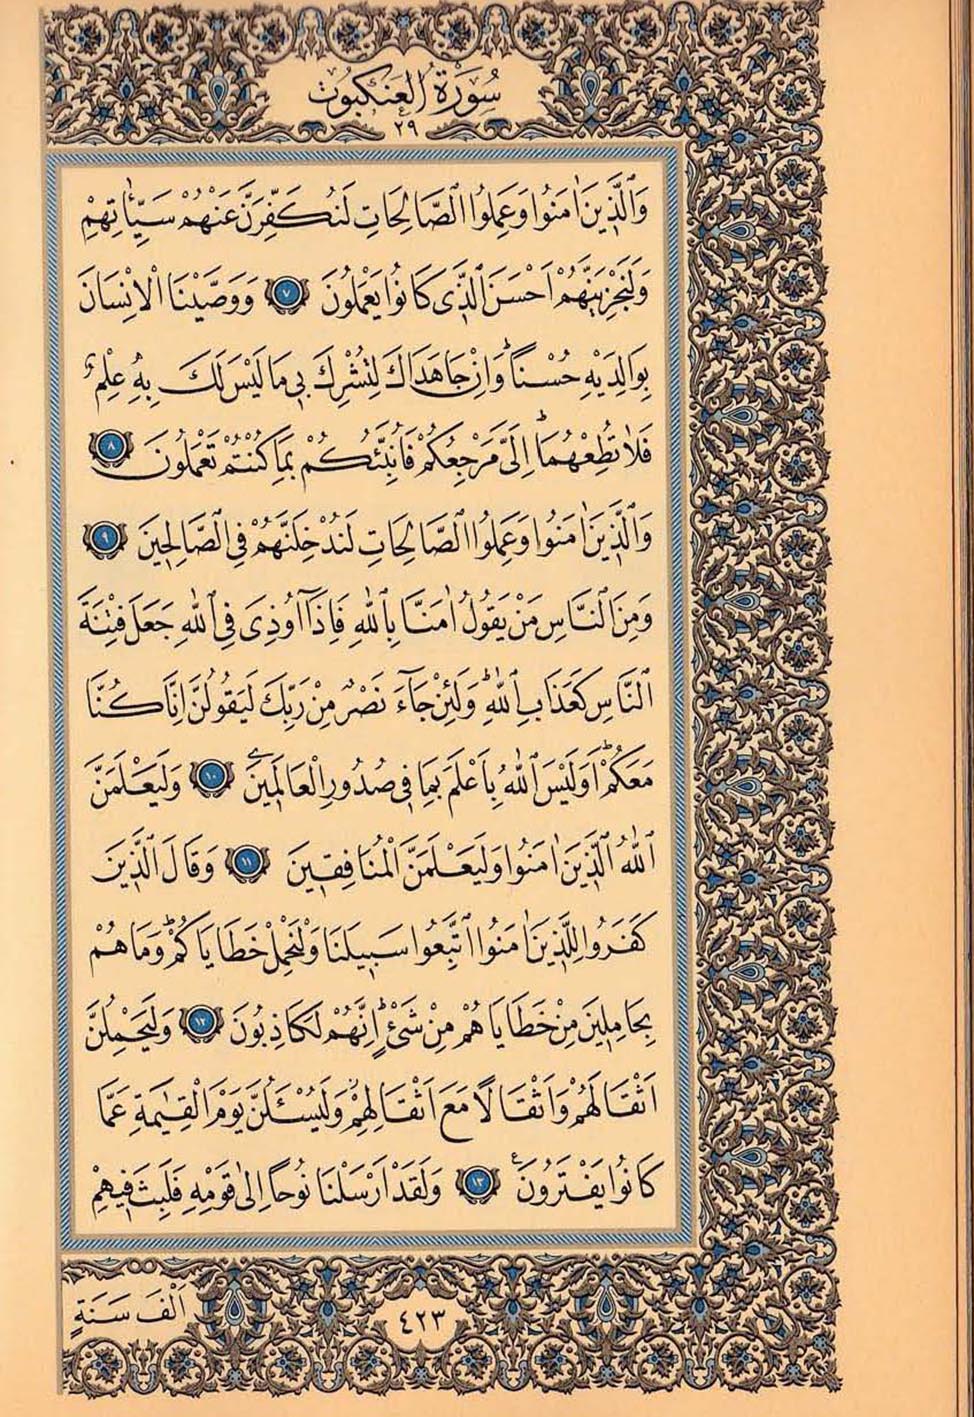 سُورَةُ الْعَنْكَبُوتِ
٢٩
وَالَّذ۪ينَ اٰمَنُوا وَعَمِلُوا الصَّالِحَاتِ لَنُكَفِّرَنَّ عَنْهُمْ سَيِّـَٔاتِهِمْ
وَلَنَجْزِيَنَّهُمْ اَحْسَنَ الَّذ۪ي كَانُوا يَعْمَلُونَ ﴿٧﴾ وَوَصَّيْنَا الْاِنْسَانَ
بِوَالِدَيْهِ حُسْناًۜ وَاِنْ جَاهَدَاكَ لِتُشْرِكَ ب۪ي مَا لَيْسَ لَكَ بِه۪ عِلْمٌ
فَلَا تُطِعْهُمَاۜ اِلَيَّ مَرْجِعُكُمْ فَاُنَبِّئُكُمْ بِمَا كُنْتُمْ تَعْمَلُونَ ﴿٨﴾
وَالَّذ۪ينَ اٰمَنُوا وَعَمِلُوا الصَّالِحَاتِ لَنُدْخِلَنَّهُمْ فِي الصَّالِح۪ينَ ﴿٩﴾
وَمِنَ النَّاسِ مَنْ يَقُولُ اٰمَنَّا بِاللّٰهِ فَاِذَٓا اُو۫ذِيَ فِي اللّٰهِ جَعَلَ فِتْنَةَ
النَّاسِ كَعَذَابِ اللّٰهِۜ وَلَئِنْ جَٓاءَ نَصْرٌ مِنْ رَبِّكَ لَيَقُولُنَّ اِنَّا كُنَّا
مَعَكُمْۜ اَوَلَيْسَ اللّٰهُ بِاَعْلَمَ بِمَا ف۪ي صُدُورِ الْعَالَم۪ينَ ﴿١٠﴾ وَلَيَعْلَمَنَّ
اللّٰهُ الَّذ۪ينَ اٰمَنُوا وَلَيَعْلَمَنَّ الْمُنَافِق۪ينَ ﴿١١﴾ وَقَالَ الَّذ۪ينَ
كَفَرُوا لِلَّذ۪ينَ اٰمَنُوا اتَّبِعُوا سَب۪يلَنَا وَلْنَحْمِلْ خَطَايَاكُمْۜ وَمَا هُمْ
بِحَامِل۪ينَ مِنْ خَطَايَاهُمْ مِنْ شَيْءٍۜ اِنَّهُمْ لَكَاذِبُونَ ﴿١٢﴾ وَلَيَحْمِلُنَّ
اَثْقَالَهُمْ وَاَثْقَالاً مَعَ اَثْقَالِهِمْۘ وَلَيُسْـَٔلُنَّ يَوْمَ الْقِيٰمَةِ عَمَّا
كَانُوا يَفْتَرُونَ۟ ﴿١٣﴾ وَلَقَدْ اَرْسَلْنَا نُوحاً اِلٰى قَوْمِه۪ فَلَبِثَ ف۪يهِمْ
اَلْفَ سَنَةٍ
٤٢٣